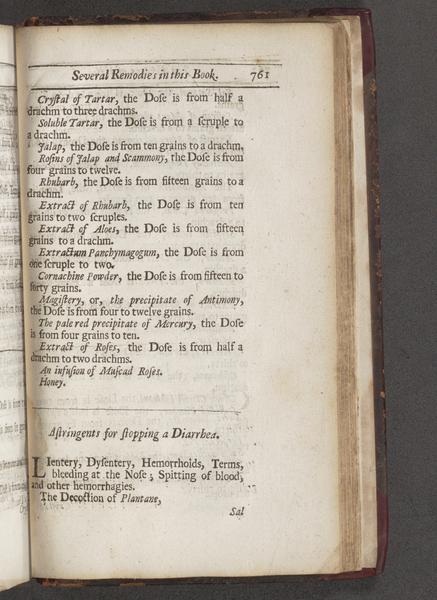 Several Remodies in this Book. 761
Cryſtal of Tartar, the Doſe is from half a
drachm to three drachms.
Soluble Tartar, the Doſe is from a ſcruple to
a drachm.
Jalap, the Doſe is from ten grains to a drachm.
Roſins of Jalap and Scammony, the Doſe is from
four grains to twelve.
Rhubarb, the Doſe is from fifteen grains to a
drachm.
Extract of Rhubarb, the Doſe is from ten
grains to two ſcruples.
Extract of Aloes, the Doſe is from fifteen
grains to a drachm.
Extractum Panchymagogum, the Doſe is from
one ſcruple to two.
Cornachine Powder, the Doſe is from fifteen to
forty grains.
Magiſtery, or, the precipitate of Antimony,
the Doſe is from four to twelve grains.
The pale red precipitate of Mercury, the Doſe
is from four grains to ten.
Extract of Roſes, the Doſe is from half a
drachm to two drachms.
An infuſion of Muſcad Roſes.
Honey.
Aſtringents for ſtopping a Diarrhea.
Lientery, Dyſentery, Hemorrhoids, Terms,
bleeding at the Noſe; Spitting of blood,
and other hemorrhagies.
The Decoction of Plantane,
Sal